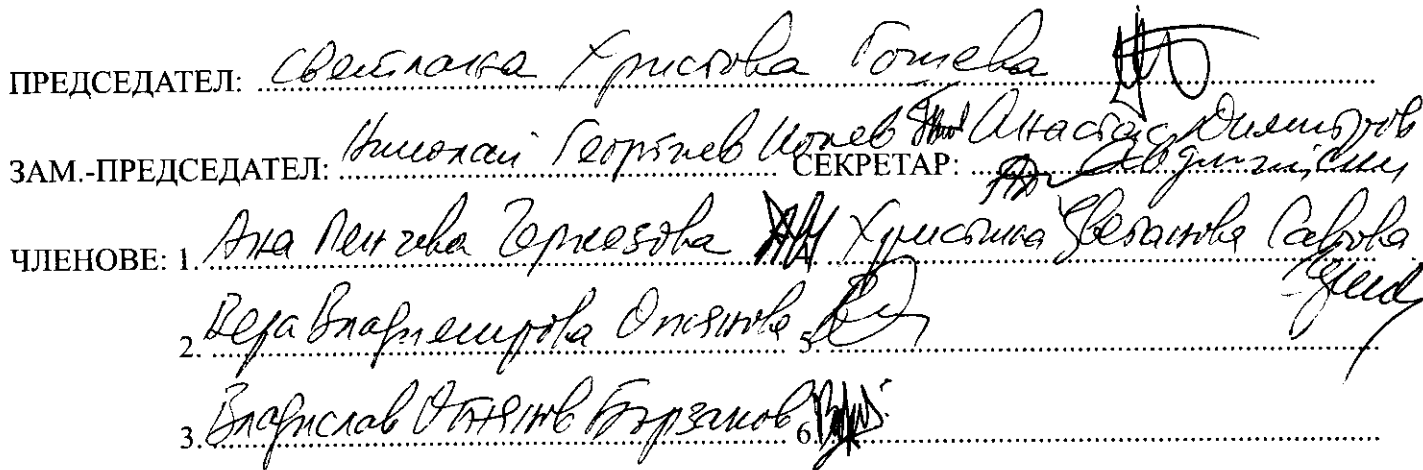 ПРЕДСЕДАТЕЛ: Светлана Христова Гошева
ЗАМ.-ПРЕДСЕДАТЕЛ: Николай Георгиев Колев СЕКРЕТАР: Анастас Димитров
ЧЛЕНОВЕ: 1. Ана Пенчева Черкезова Христина Цветанова Саввова
2. Вера Владимирова Огнянова 5
3. Владислав Огнянов Борзаков 6